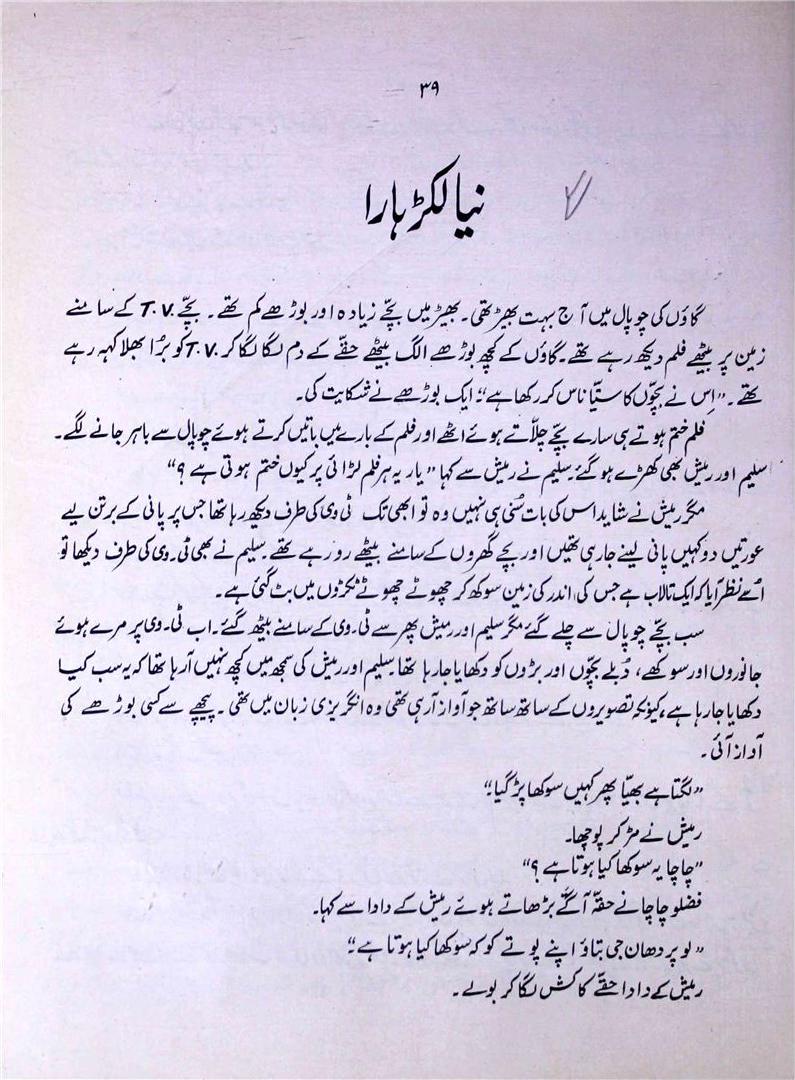 ۳۹
نیا لکڑہارا
گاؤں کی چوپال میں آج بہت بھیڑ تھی۔ بھیڑ میں بچّے زیادہ اور بوڑھے کم تھے۔ بچّے T.V. کے سامنے
زمین پر بیٹھے فلم دیکھ رہے تھے۔ گاؤں کے کچھ بوڑھے الگ بیٹھے حقّے کے دم لگا لگا کر T.V. کو بُرا بھلا کہہ رہے
تھے۔ ”اِس نے بچّوں کا ستیّا ناس کر رکھا ہے“۔ ایک بوڑھے نے شکایت کی۔
فلم ختم ہوتے ہی سارے بچّے چلاّتے ہوئے اٹھے اور فلم کے بارے میں باتیں کرتے ہوئے چوپال سے باہر جانے لگے۔
سلیم اور رمیش بھی کھڑے ہو گئے۔ سلیم نے رمیش سے کہا ”یار یہ ہر فلم لڑائی پر کیوں ختم ہوتی ہے ؟“
مگر رمیش نے شاید اس کی بات سُنی ہی نہیں وہ تو ابھی تک ٹی وی کی طرف دیکھ رہا تھا جس پر پانی کے برتن لیے
عورتیں دور کہیں پانی لینے جا رہی تھیں اور بچّے گھروں کے سامنے بیٹھے رو رہے تھے۔ سلیم نے بھی ٹی۔وی کی طرف دیکھا تو
اُسے نظر آیا کہ ایک تالاب ہے جس کی اندر کی زمین سوکھ کر چھوٹے چھوٹے ٹکڑوں میں بٹ گئی ہے۔
سب بچّے چوپال سے چلے گئے مگر سلیم اور رمیش پھر سے ٹی۔وی کے سامنے بیٹھ گئے۔ اب ٹی۔وی پر مرے ہوئے
جانوروں اور سوکھے، دُبلے بچّوں اور بڑوں کو دکھایا جا رہا تھا۔ سلیم اور رمیش کی سمجھ میں کچھ نہیں آ رہا تھا کہ یہ سب کیا
دکھایا جا رہا ہے، کیونکہ تصویروں کے ساتھ ساتھ جو آواز آ رہی تھی وہ انگریزی زبان میں تھی۔ پیچھے سے کسی بوڑھے کی
آواز آئی۔
”لگتا ہے بھیّا پھر کہیں سوکھا پڑ گیا۔“
رمیش نے مڑ کر پوچھا۔
”چاچا یہ سوکھا کیا ہوتا ہے ؟“
فضلو چاچا نے حقہّ آگے بڑھاتے ہوئے رمیش کے دادا سے کہا۔
”لو پردھان جی بتاؤ اپنے پوتے کو کہ سوکھا کیا ہوتا ہے“
رمیش کے دادا حقّے کا کش لگا کر بولے۔